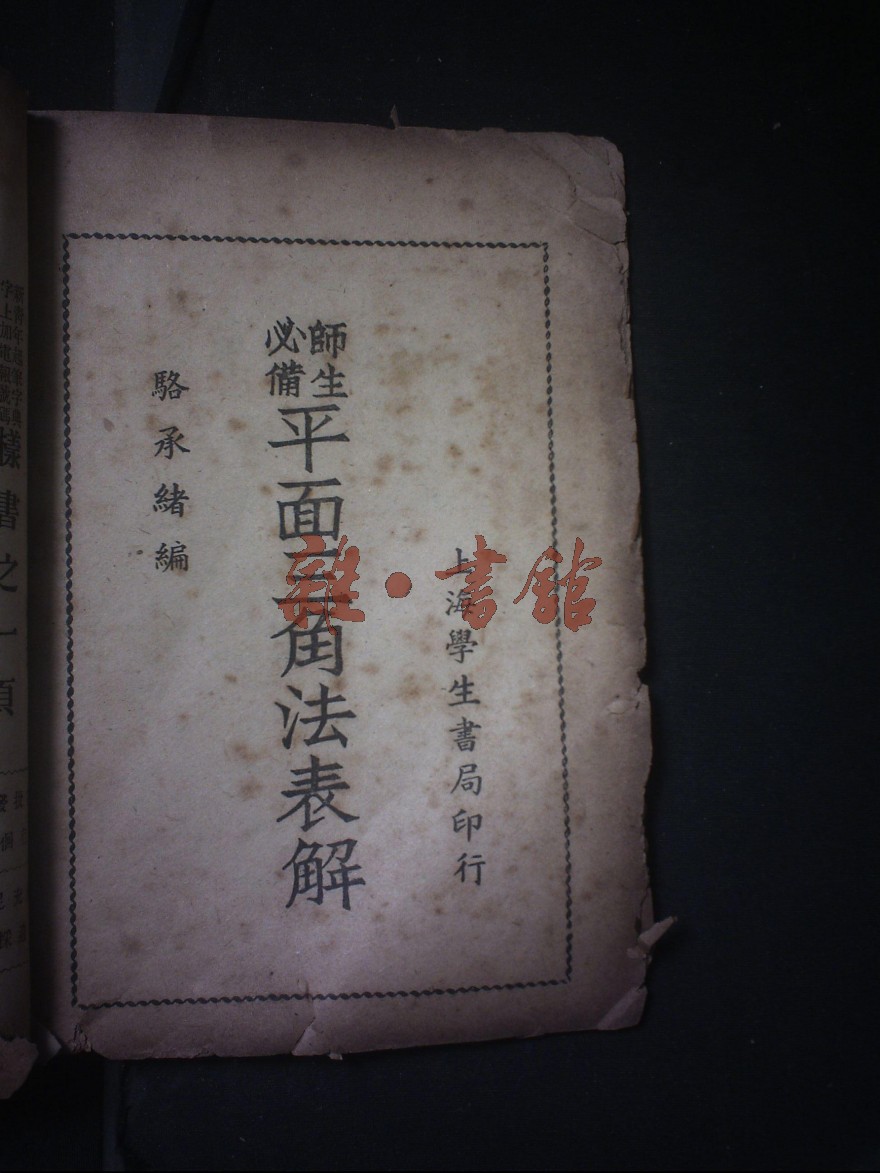 上海學生書局印行
師生
必備
平面三角法表解
駱承緒編
雜·書館
樣書之一頁